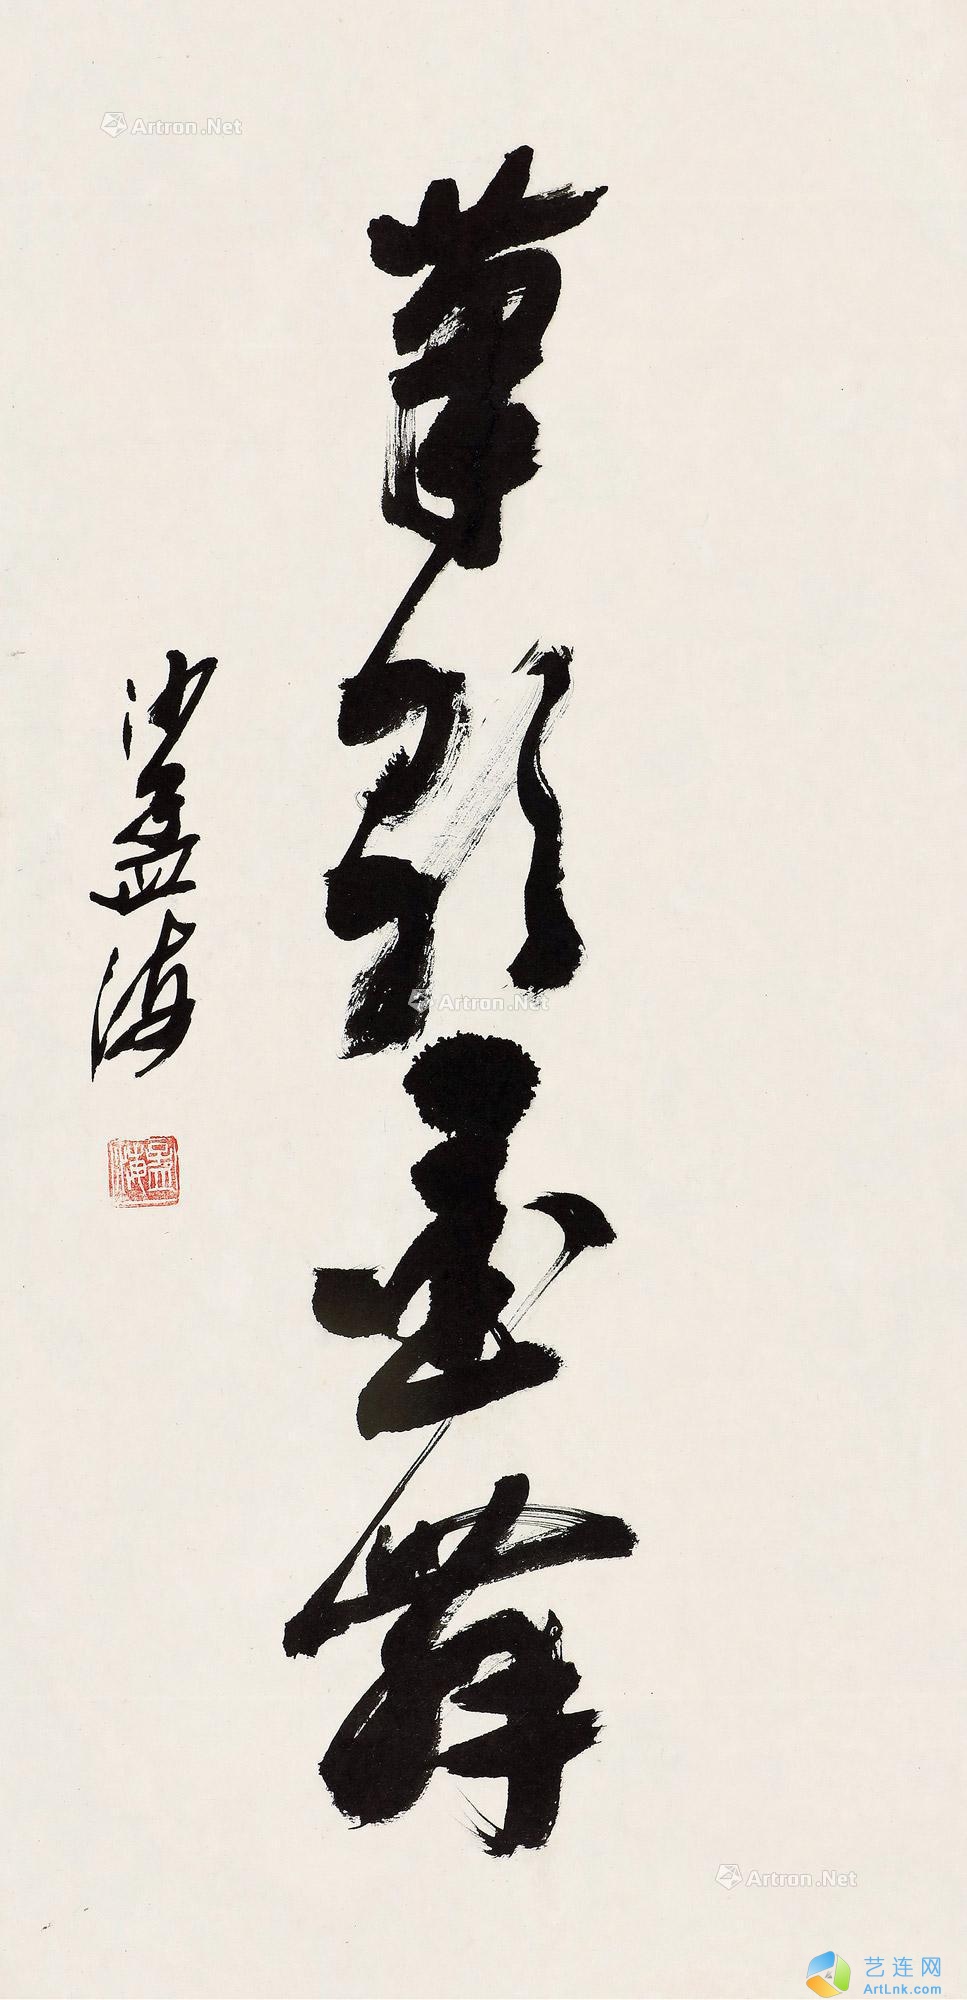 筆歌墨舞
沙孟海
孟海
Artron.Net
Artron.Net
Artron.Net
艺连网
ArtLnk.com